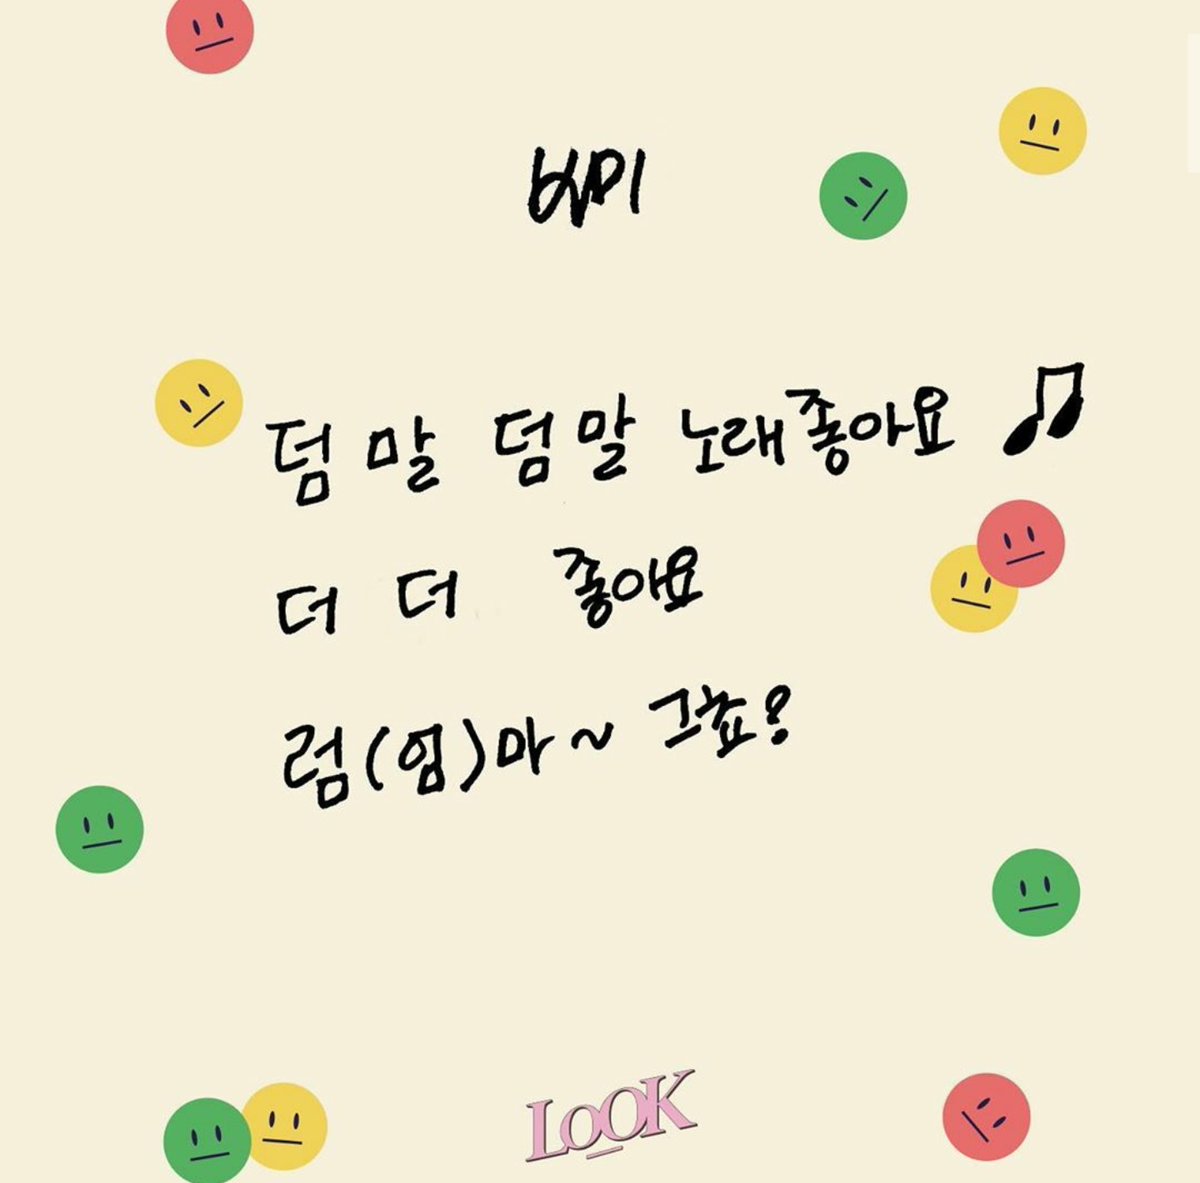 덤 말 덤 말 노래좋아요
더 더 좋아요
럼(엄)마~ 그쵸?
LOOK